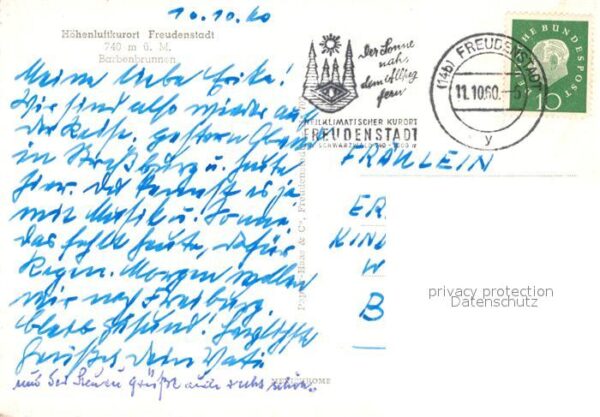 10.10.60
Höhenluftkurort Freudenstadt
740 m ü. M.
Barbenbrunnen
Meine liebe Erika!
Wir sind also wieder auf
der Reise, gestern Abend
in Straßburg u. heute
hier. Du kennst es ja
mit Musik u. Sonne
das fehlt heute, dafür
Regen. Morgen wollen
wir nach Freiburg.
bleib gesund! Herzlichste
Grüße Dein Vati
und bei grüßt auch recht schön.
Der Sonne
nah,
dem Alltag
fern
HEILKLIMATISCHER KURORT
FREUDENSTADT
SCHWARZWALD 740-1000 M
(14b) FREUDENSTADT
11.10.60.
y
DEUTSCHE BUNDESPOST
10
FRÄULEIN
ER
KIN
W
B
Haas & Co., Freudenstadt
privacy protection
Datenschutz